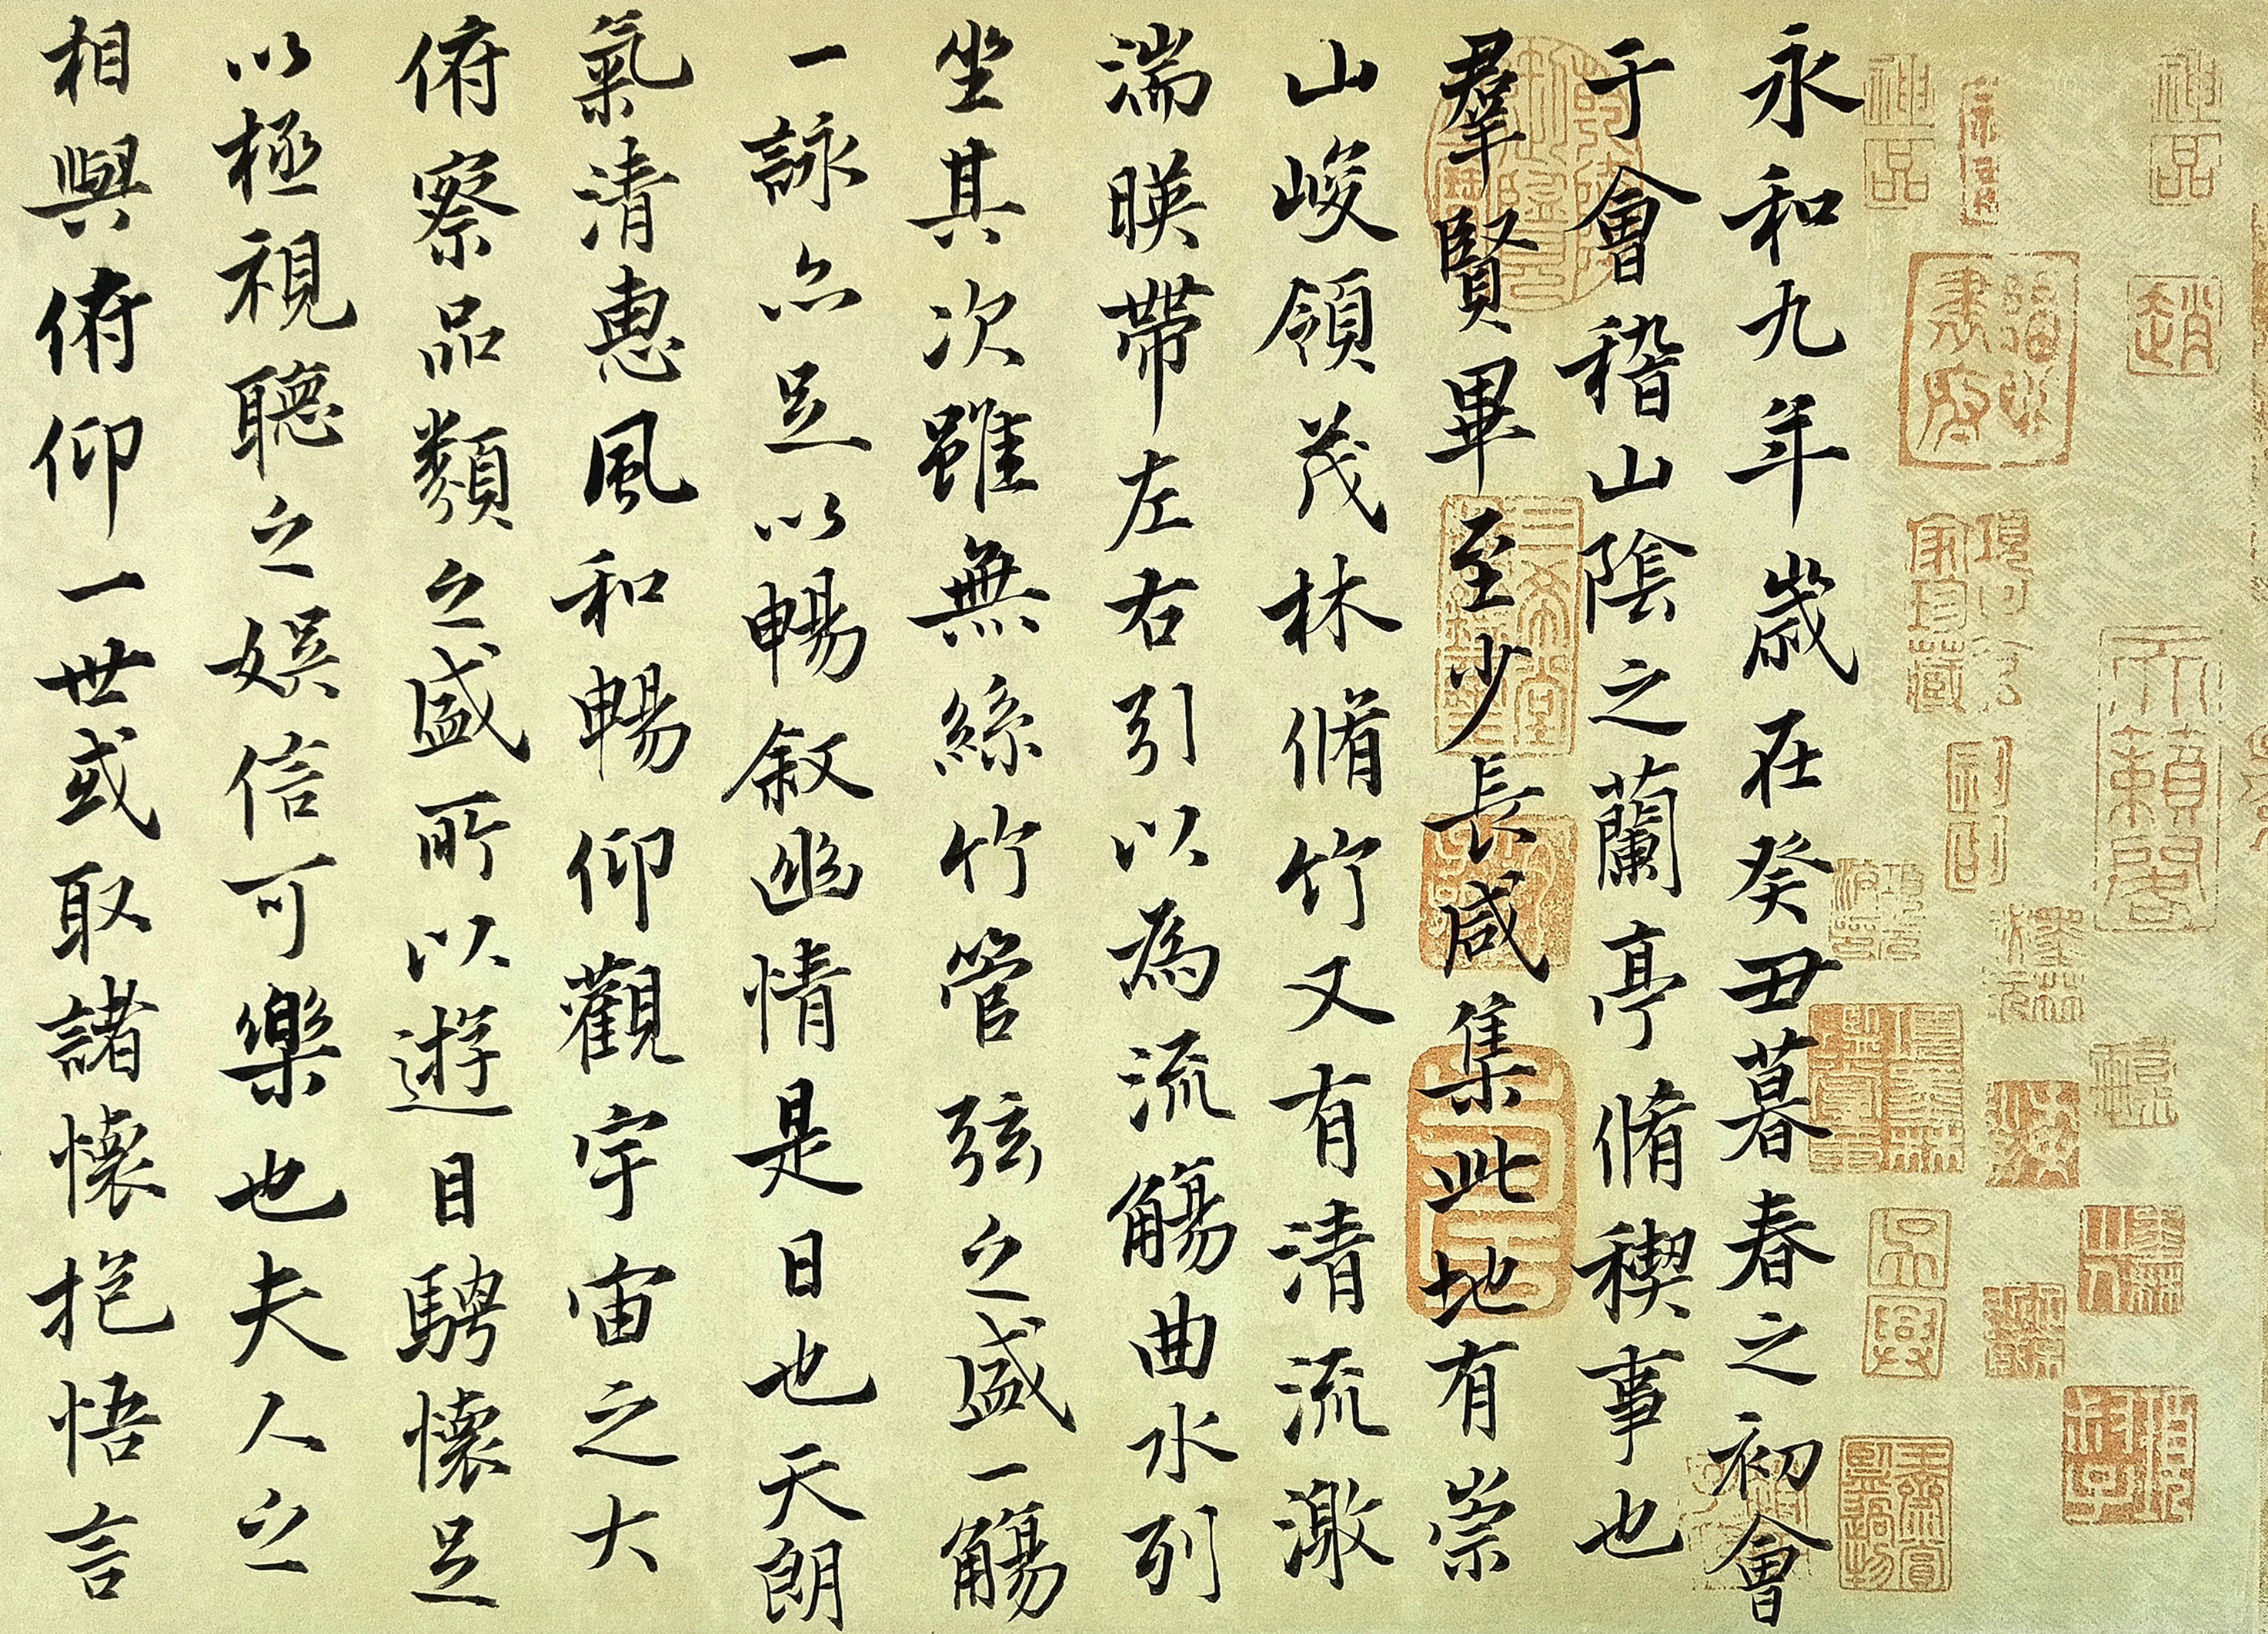 神品
趙
天籟閣
神品
項子京
家珍藏
吳興
永和九年歲在癸丑暮春之初會
于會稽山陰之蘭亭脩稧事也
羣賢畢至少長咸集此地有崇
山峻領茂林脩竹又有清流激
湍暎帶左右引以為流觴曲水列
坐其次雖無絲竹管弦之盛一觴
一詠亦足以暢敘幽情是日也天朗
氣清惠風和暢仰觀宇宙之大
俯察品類之盛所以遊目騁懷足
以極視聽之娛信可樂也夫人之
相與俯仰一世或取諸懷抱悟言